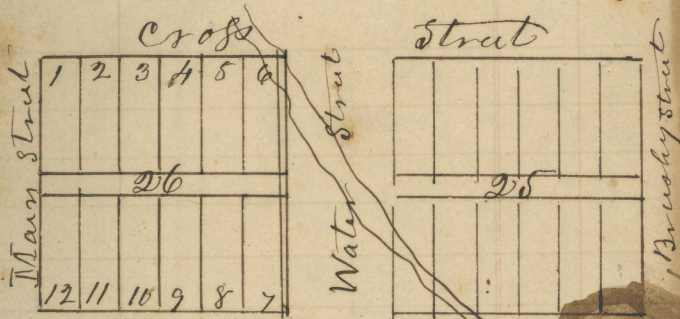 Cross Street
Main Street
1 2 3 4 5 6
26
12 11 10 9 8 7
Water Street
25
Brushy Street